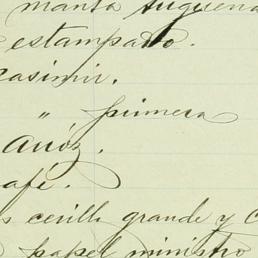 manta trigueña
estampado.
Casimir.
" primera
Arróz.
café.
s cerilla grande y c
papel ministro